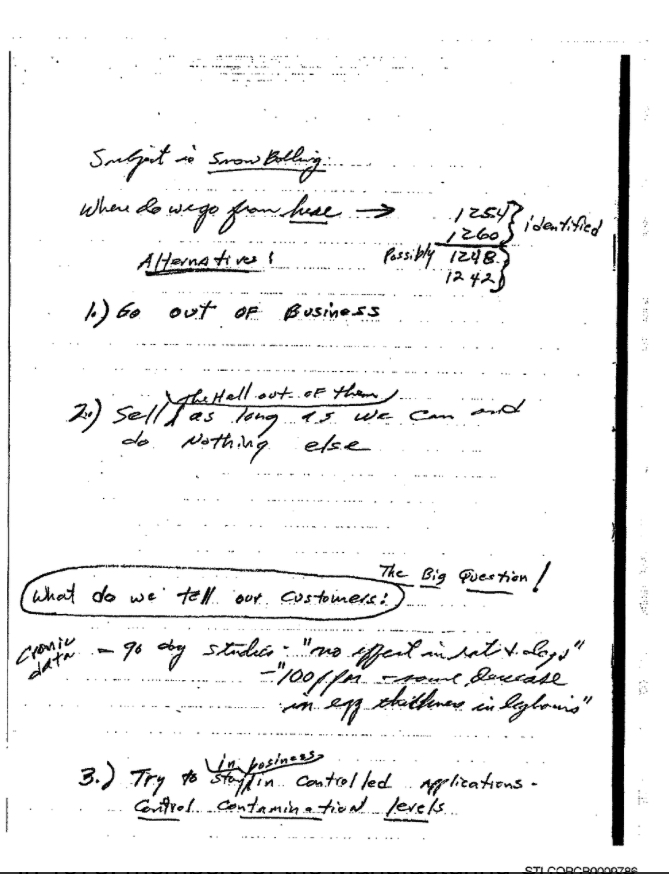 Subject is Snow Balling.
Where do we go from here → 1254 } identified
1260
Alternatives: Possibly 1248 }
1242
1.) Go out of Business
the Hell out of them
2.) Sell as long as we can and
do Nothing else
The Big Question!
What do we tell our customers:
cronic data – 90 day studies - "no effect in rat & dogs"
– "100 ppm - some decrease
in egg thickness in leghorns"
in business
3.) Try to stay in controlled applications -
Control contamination levels
STLCOPCB0009786